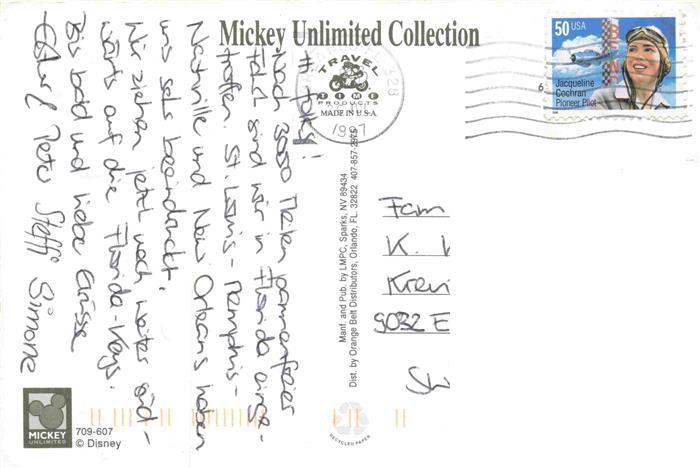 Mickey Unlimited Collection
50 USA
Jacqueline
Cochran
Pioneer Pilot
TRAVEL
TIME
PRODUCTS
MADE IN U.S.A.
1997
Manf. and Pub. by LMPC, Sparks, NV 89434
Dist. by Orange Belt Distributors, Orlando, FL. 32822 407-857-2975
Nach 3050 Meilen pannenfreier
Fahrt sind wir in Florida einge-
troffen. St. Louis - Memphis -
Nashville und New Orleans haben
uns sehr beeindruckt.
Wir ziehen jetzt noch weiter süd-
wärts auf die Florida-Keys.
Bis bald und liebe Grüsse
Peter Steffi Simone
Fam
K.
9032 E
MICKEY
UNLIMITED
709-607
© Disney
RECYCLED PAPER